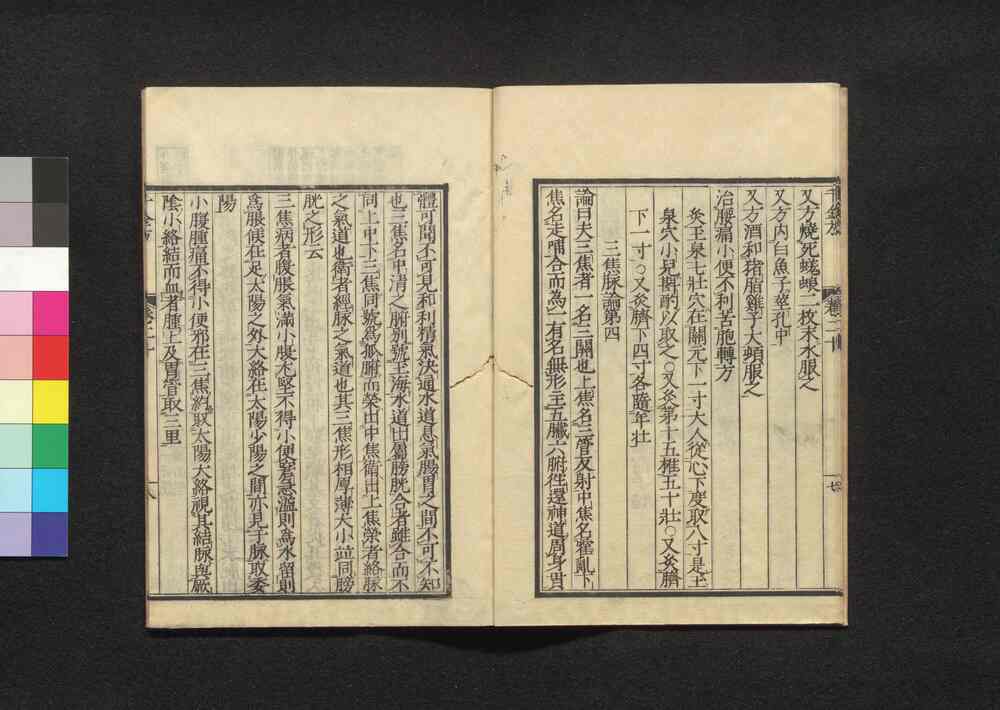 又方燒死蜣蜋二枚末水服之
又方内白魚子莖孔中
又方酒和猪脂雞子大頻服之
治腰痛小便不利苦胞轉方
灸玉泉七壯穴在關元下一寸大人從心下度取八寸是玉
泉穴小兒斟酌以取之○又灸第十五椎五十壯○又灸臍
下一寸○又灸臍下四寸各隨年壯
三焦脉論第四
論曰夫三焦者一名三關也上焦名三管反射中焦名霍亂下
焦名走哺合而為一有名無形主五臟六腑往還神道周身貫
體可聞不可見和利精氣決通水道息氣腸胃之間不可不知
也三焦名中清之腑別號玉海水道出屬膀胱合者雖合而不
同上中下三焦同號為孤腑而榮出中焦衛出上焦榮者絡脉
之氣道也衛者經脉之氣道也其三焦形相厚薄大小並同膀
胱之形云
三焦病者腹脹氣滿小腹尤堅不得小便窘急溢則為水留則
為脹候在足太陽之外大絡在太陽少陽之間亦見于脉取委
陽
小腹腫痛不得小便邪在三焦約取太陽大絡視其結脉與厥
陰小絡結而血者腫上及胃管取三里